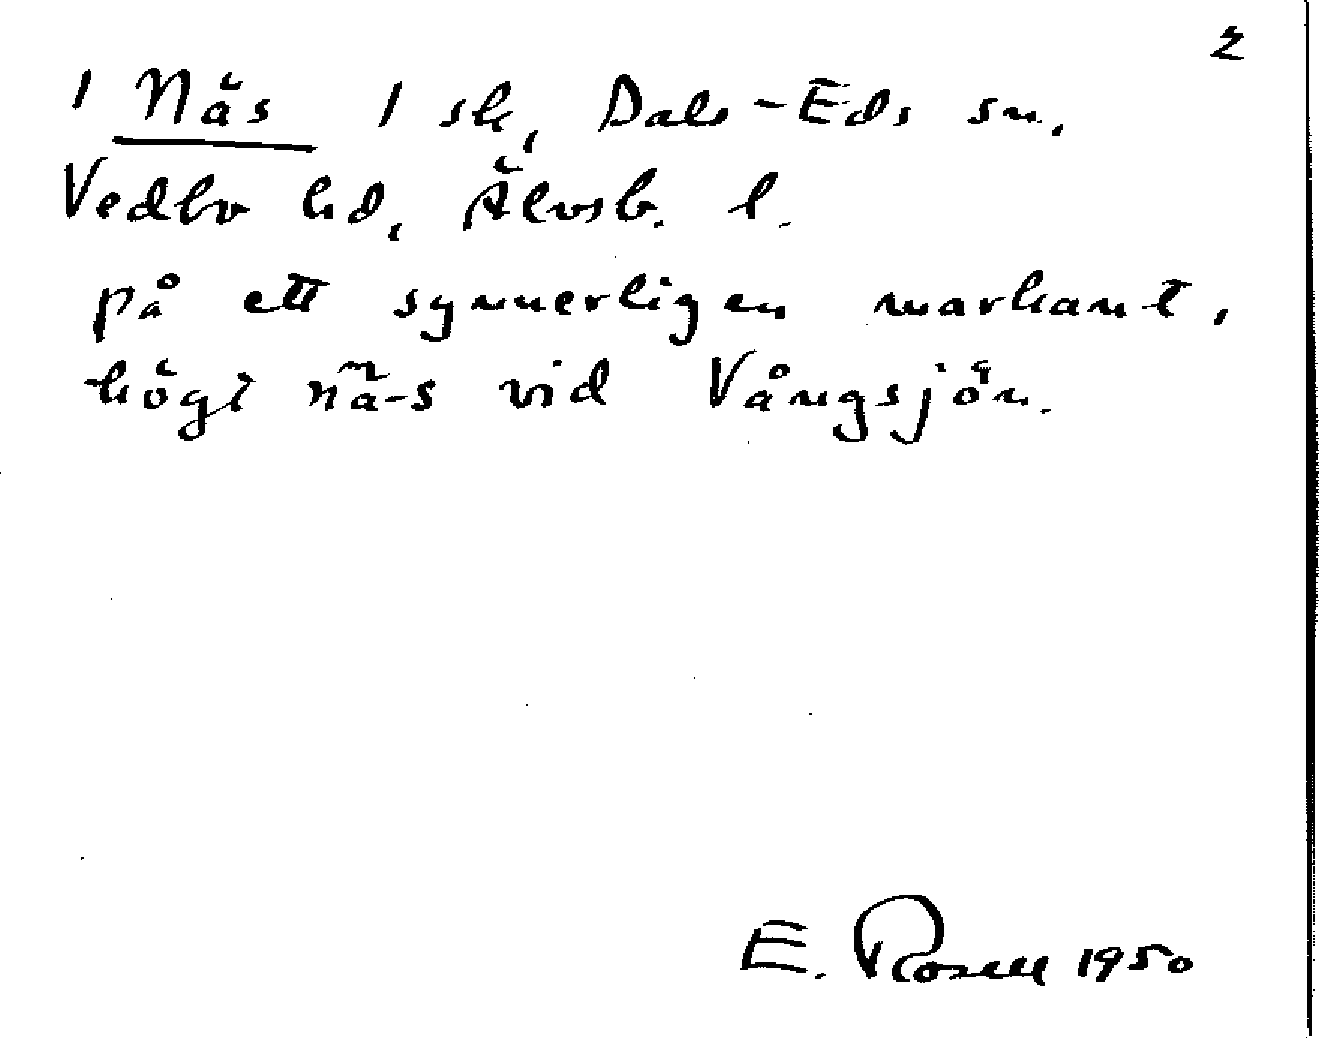 2
1 Näs 1 sk, Dals-Eds sn,
Vedbo hd, Älvsb. l.
på ett synnerligen markant,
högt nä-s vid Vångsjön.
E. Rosell 1950